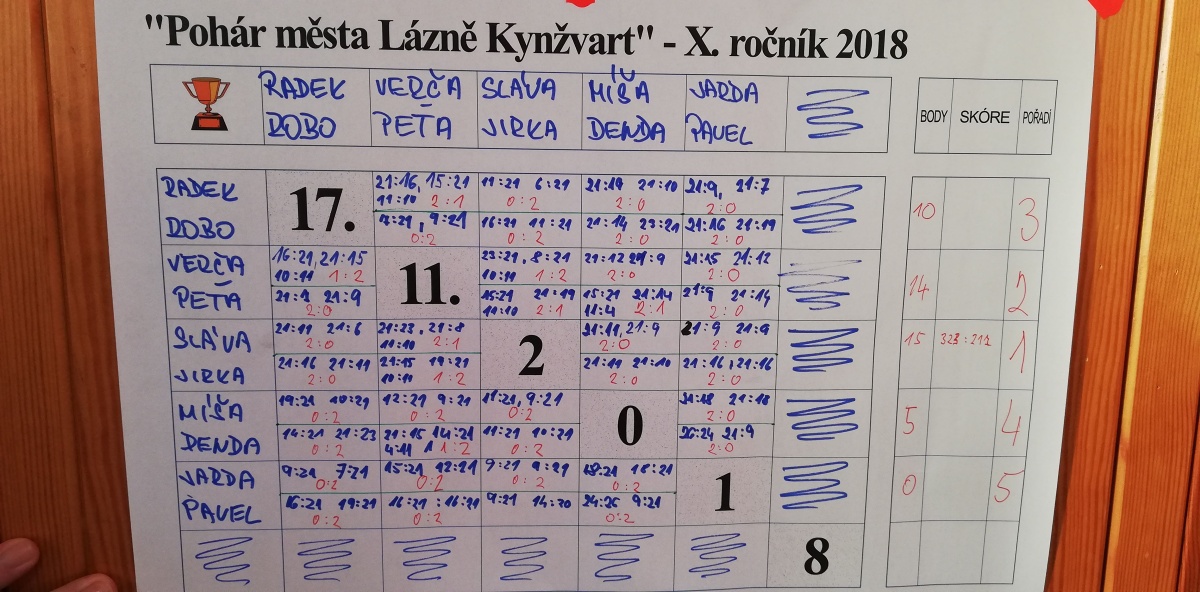 "Pohár města Lázně Kynžvart" - X. ročník 2018
RADEK VERČA SLÁVA MÍŠA JARDA
DOBO PEŤA JIRKA DENDA PAVEL
BODY SKÓRE POŘADÍ
RADEK 21:16, 15:21 11:21 6:21 21:19 21:10 21:9, 21:7
17. 11:10 2:1 0:2 2:0 2:0
10 3
DOBO 9:21 16:21 11:21 21:14 21:16 21:19
0:2 0:2 2:0 2:0
VERČA 16:21, 21:15 23:21, 8:21 21:12 21:9 21:15 21:12
10:11 1:2 11. 10:11 1:2 2:0 2:0
14 2
PEŤA 21:9 21:19 15:21 21:14 21:9 21:14
2:0 10:10 2:1 11:4 2:1 2:0
SLÁVA 21:11 21:6 21:23, 21:8 21:11, 21:9 21:9 21:9
2:0 11:10 2:1 2 2:0 2:0
15 1
JIRKA 21:16 21:11 21:15 19:21 21:11 21:10 21:16, 21:16
2:0 10:11 1:2 2:0 2:0
MÍŠA 19:21 10:21 12:21 9:21 11:21, 9:21 21:18 21:18
0:2 0:2 0:2 0 2:0
5 4
DENDA 14:21 21:23 21:15 14:21 11:21 10:21 26:24 21:9
0:2 4:11 1:2 0:2 2:0
JARDA 9:21 7:21 15:21 12:21 9:21 9:21 18:21 18:21
0:2 0:2 0:2 0:2 1
0 5
PAVEL 16:21 19:21 16:21 : 16:21 9:21 24:26 9:21
0:2 0:2 0:2
8